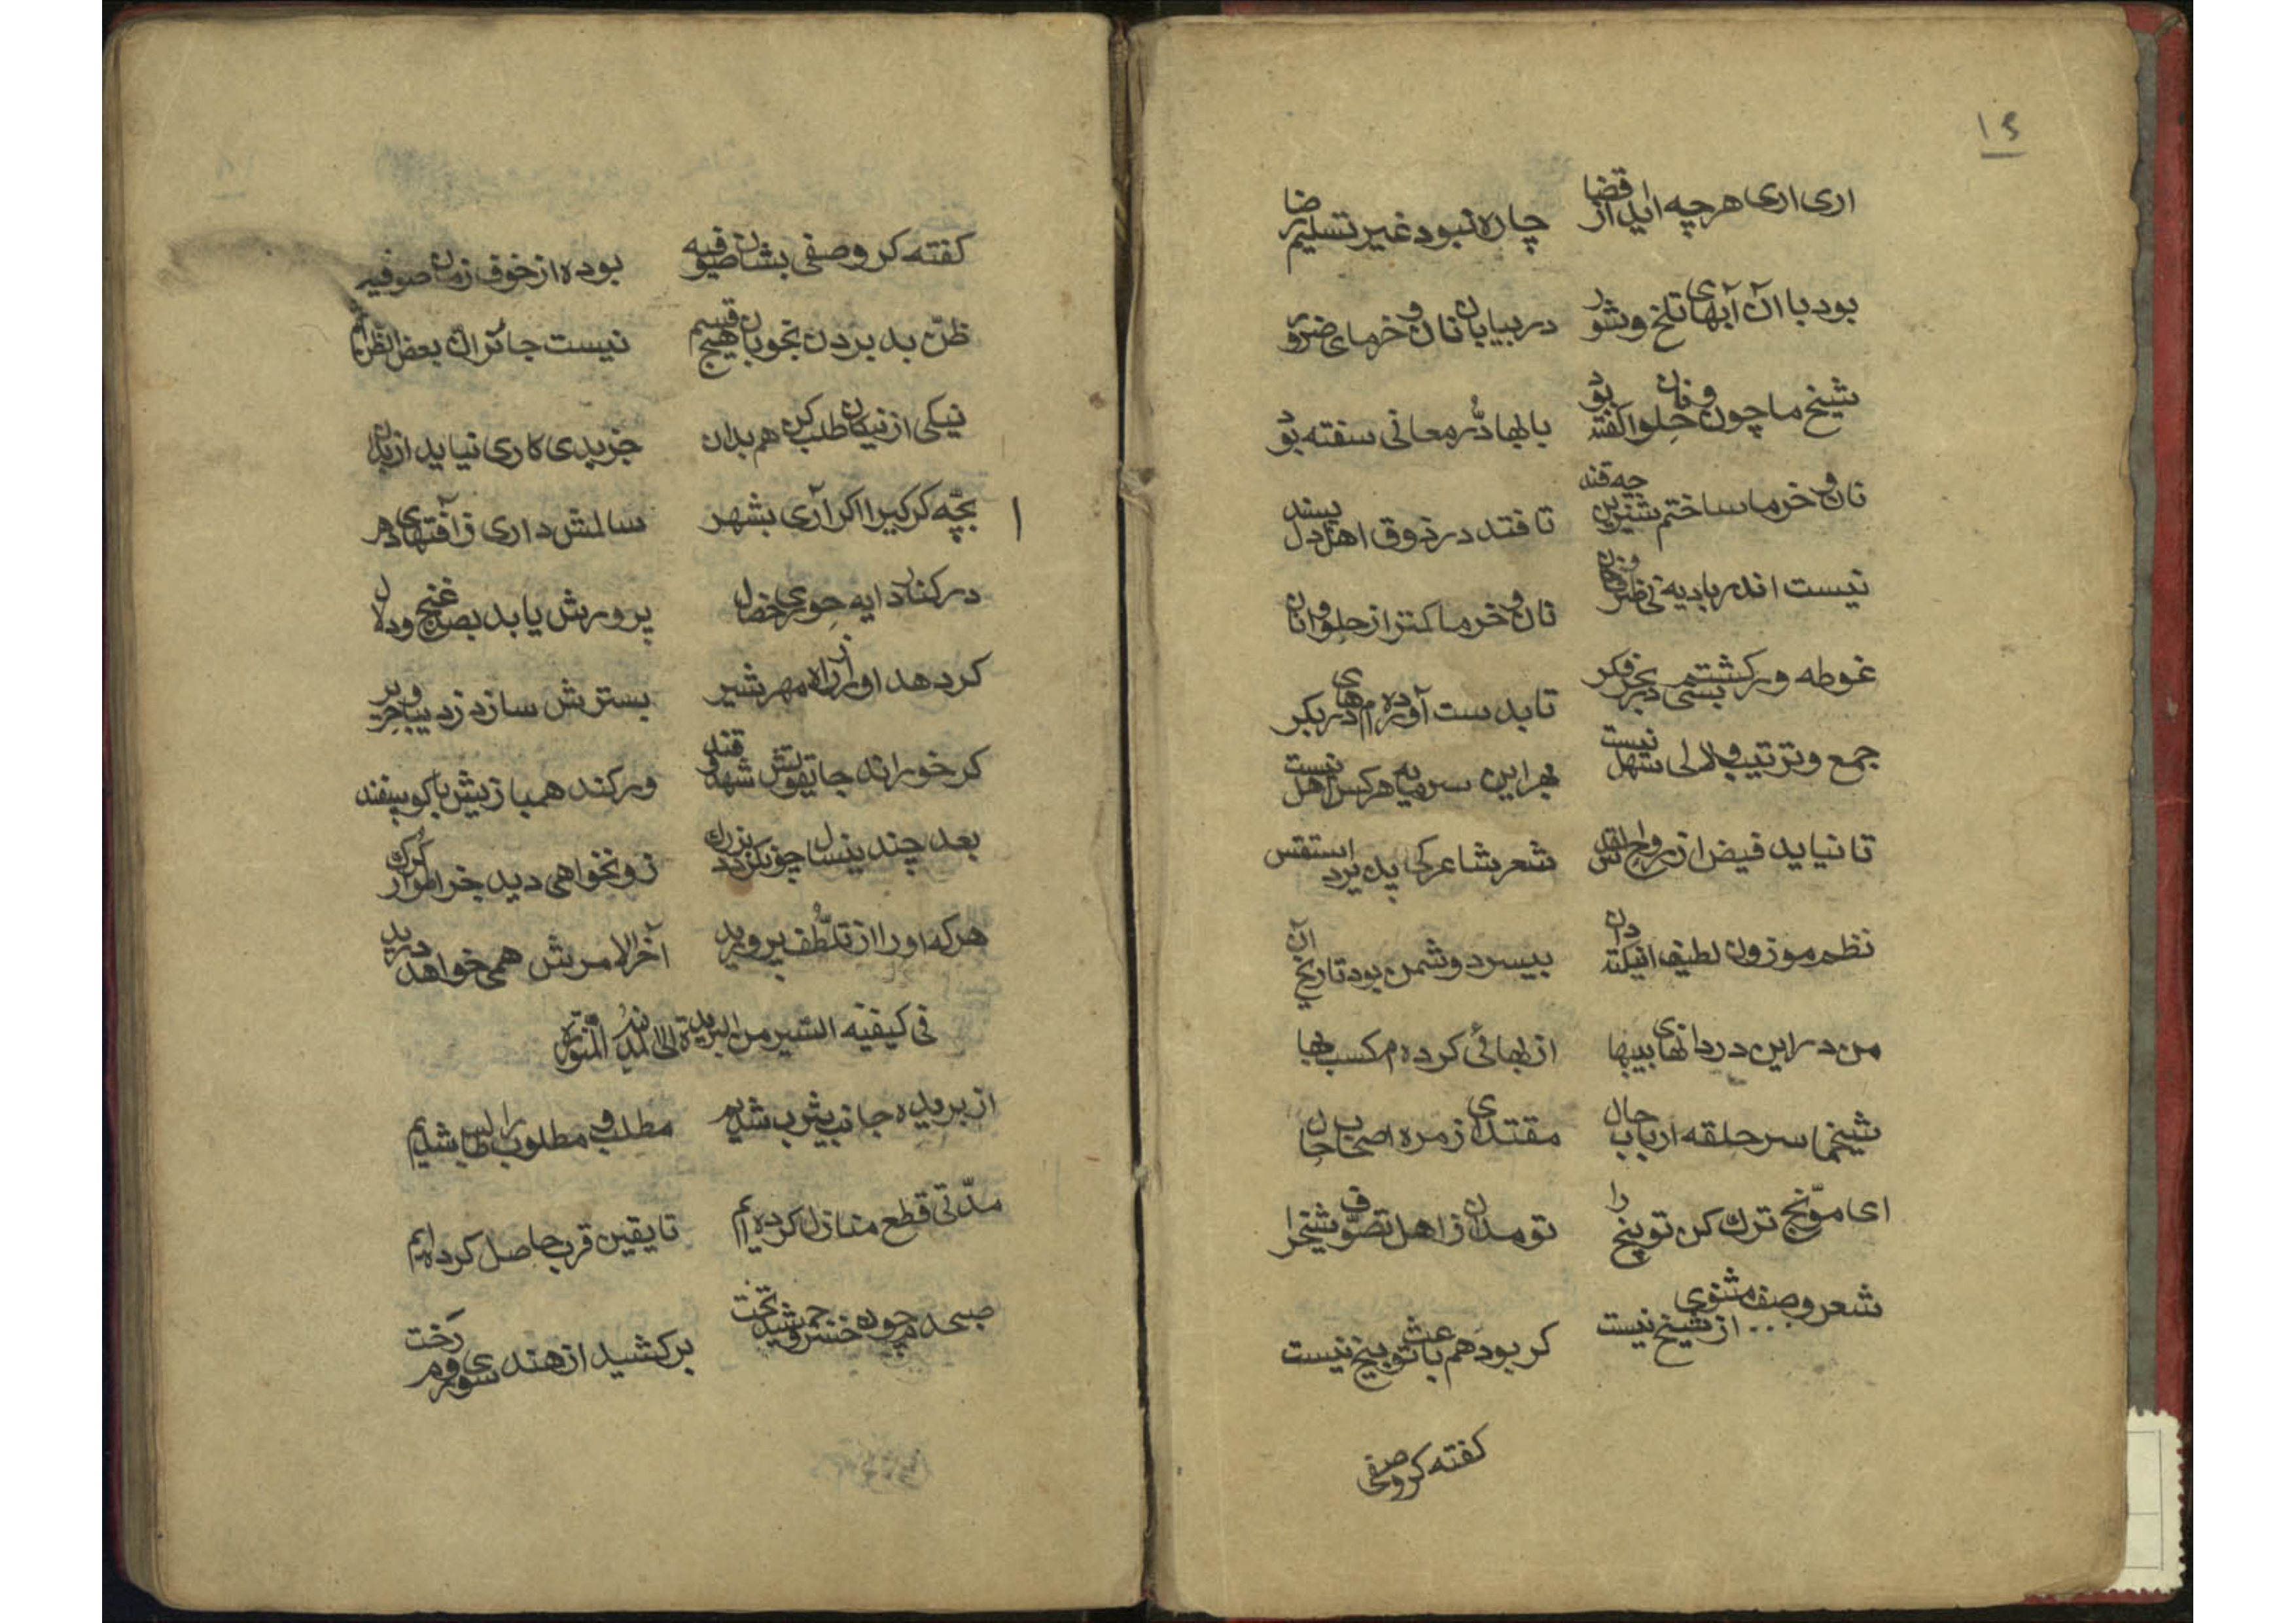 ۱۶
اری اری هرچه اید از قضا چاره نبود غیر تسلیم رضا
بود با آن آبهای تلخ و شور در بیابان نان و خرمای ضرور
شیخ ما چون نان و حلوا کفته بود با بها در معانی سفته بود
نان و خرما ساختم شیرین چه قند تا فتد در ذوق اهل دل پسند
نیست اندر بادیه نی نان و خرما کمتر از حلوا و نان
غوطه ور کشتم بسی در بحر فکر تا بدست آورده‌ام درهای بکر
جمع و ترتیب لالی سهل نیست بهر این سرمایه هر کس اهل نیست
تا نیاید فیض از روح القدس شعر شاعر کی پذیرد استقس
نظم موزون لطیف انیکته دان بیسر دشمن بود تاریخ آن
من در این دردانهای بیبها از بهائی کرده‌ام کسب بها
شیخما سر حلقه ارباب حال مقتدای زمره اصحاب حال
ای موبخ ترک کن توبیخ را تو مدان ز اهل تصوف شیخ را
شعر وصف مثنوی از شیخ نیست کر بود هم باعث توبیخ نیست
کفته کر وصفی
کفته کر وصفی بشان صوفیه بوده از خوف زمان صوفیه
ظن بد بردن بخوبان هیچ قسم نیست جائز ان بعض الظن اثم
نیکی از نیکان طلب کن هم بدان جز بدی کاری نیاید از بدان
بچه کرکیرا اکر آری بشهر سالمش داری ز آفتهای دهر
در کنار دایه حوری خصال پرورش یابد بصد غنج و دلال
کر دهد او را ز راه مهر شیر بسترش سازد ز دیبا و حریر
کر خوراند جایقوتش شهد و قند ور کند همبازیش با کوسفند
بعد چندینسال چون کردد بزرك زو نخواهی دید جز اطوار کرك
هر که او را از تلطف پرورید آخر الامرش همی خواهد درید
فی کیفیة السیر من البریدة الی المدینة المنوره
از بریده جانب یثرب شدیم مطلب و مطلوب را طالب شدیم
مدتی قطع منازل کرده‌ایم تا یقین قرب حاصل کرده‌ایم
صبحدم چون خسرو جمشید تخت برکشید از هند سوی روم رخت